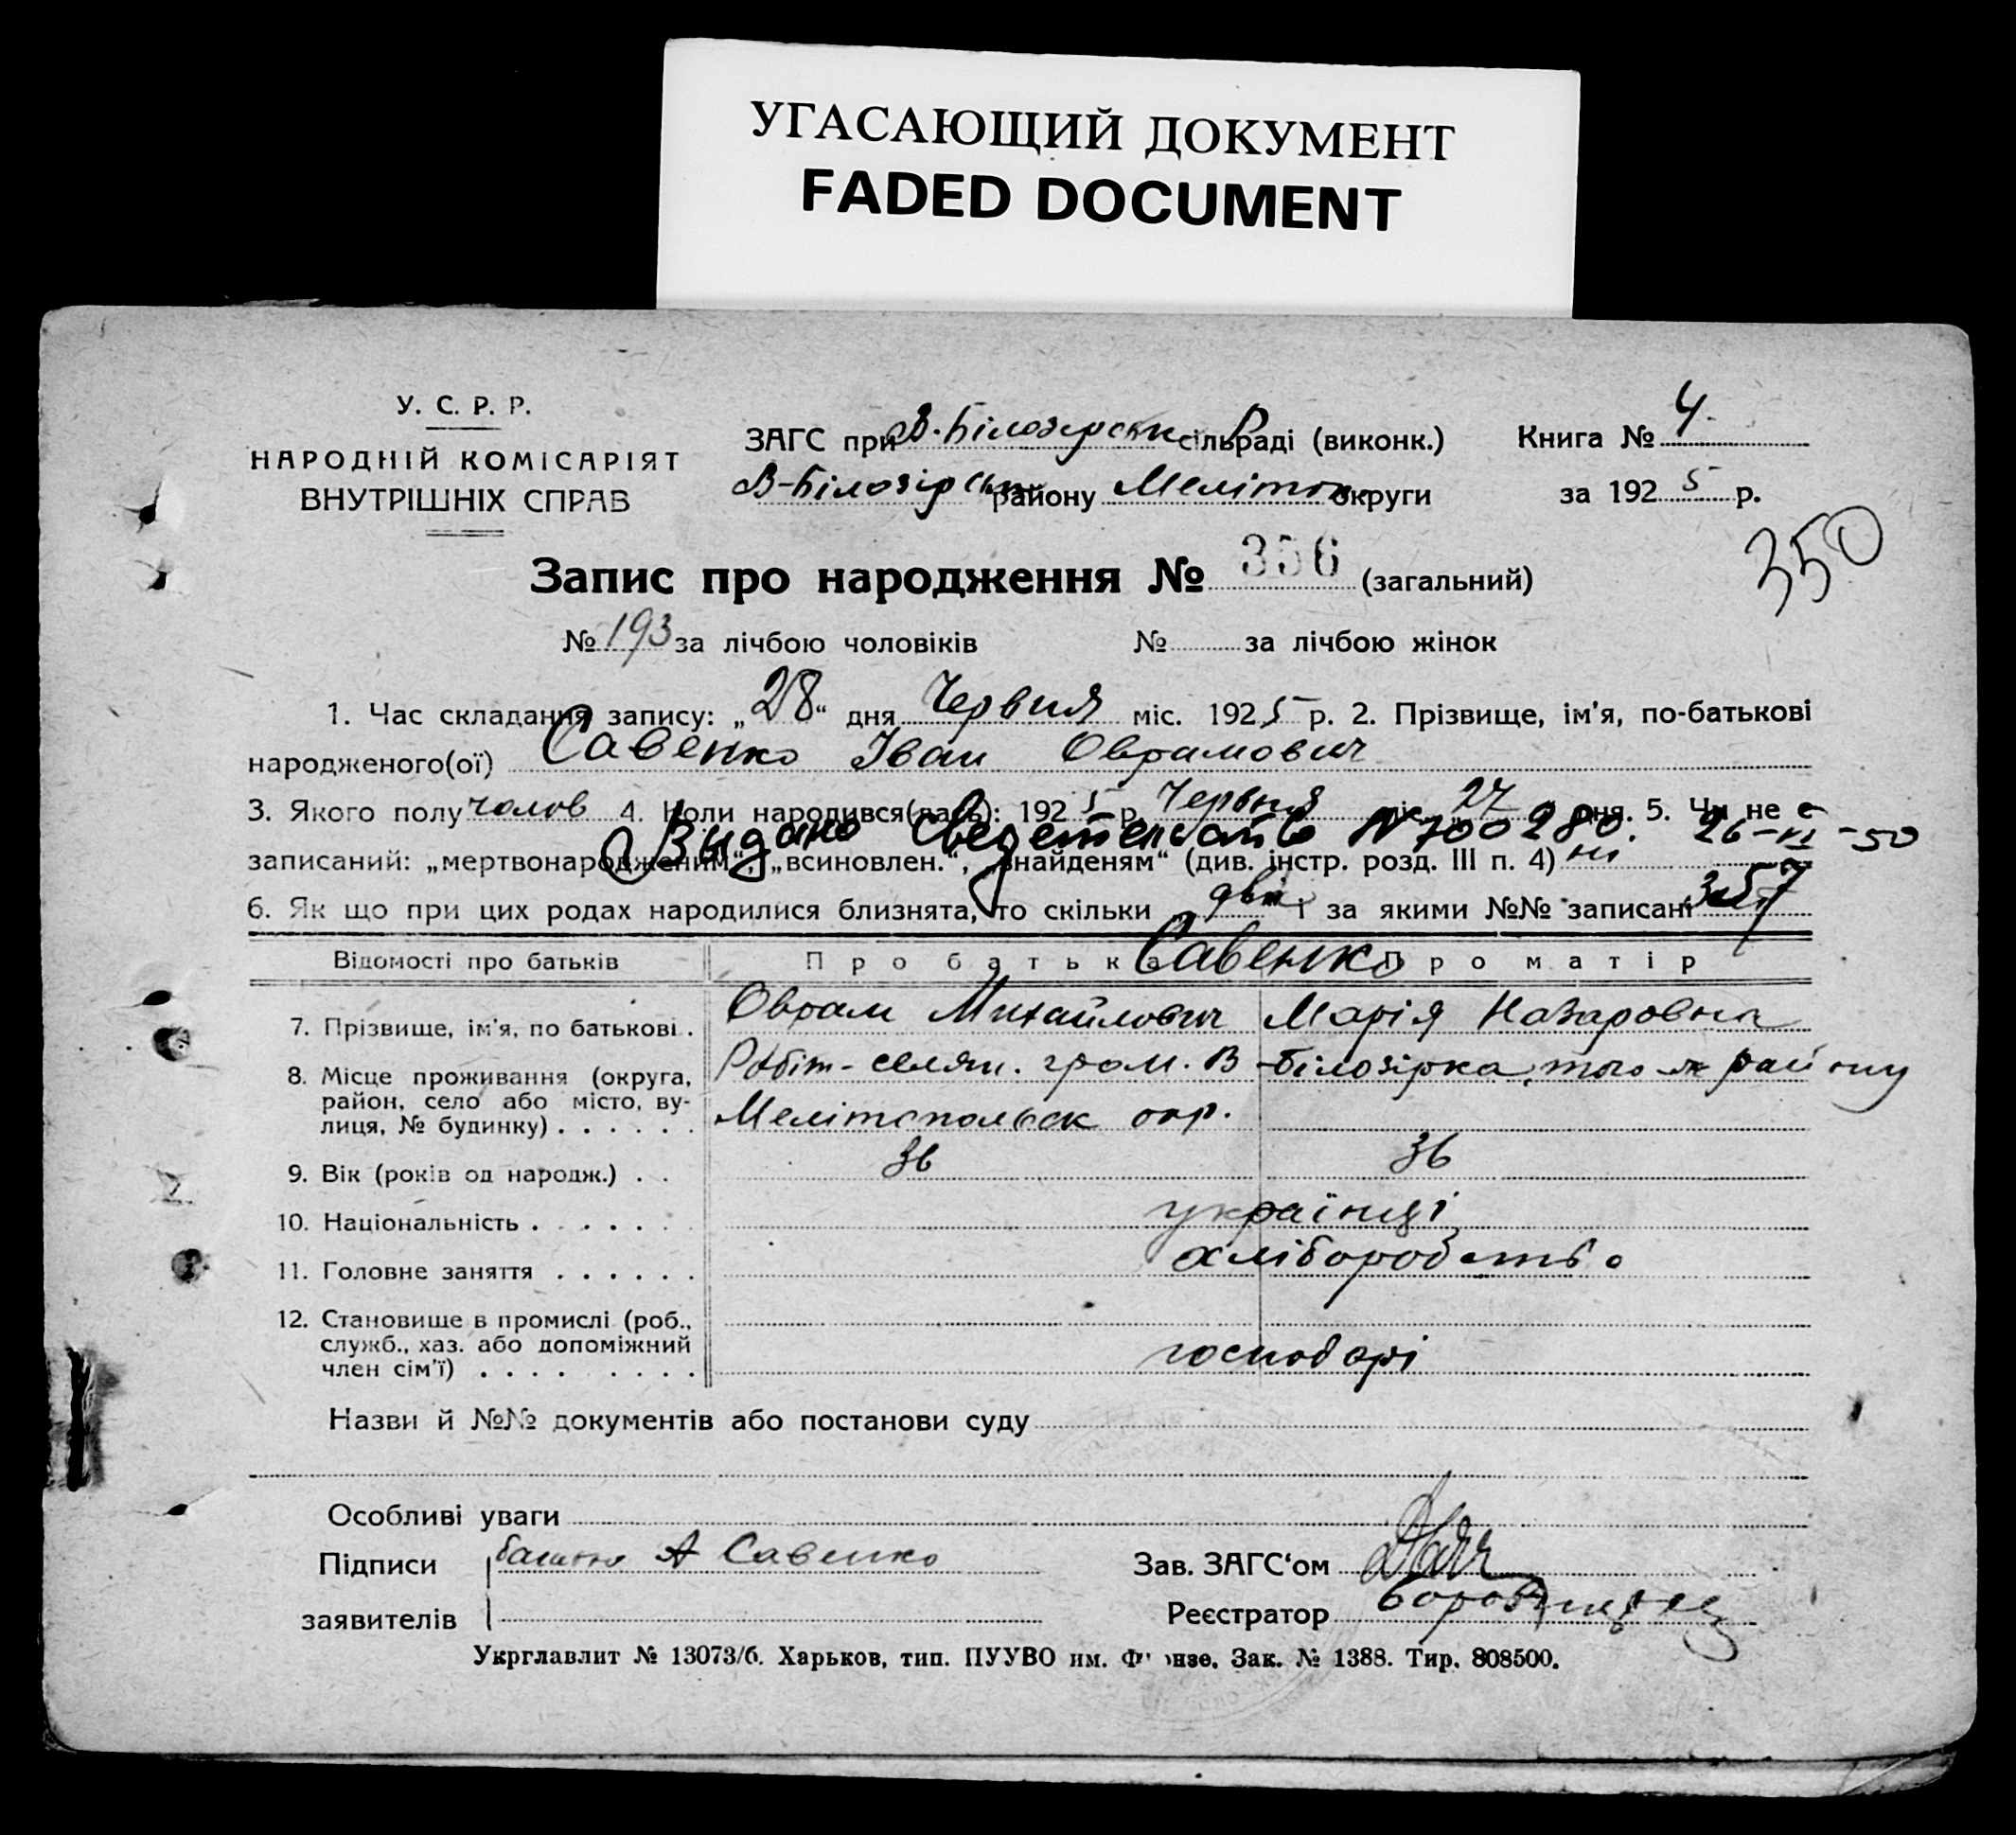 УГАСАЮЩИЙ ДОКУМЕНТ
FADED DOCUMENT
У. С. Р. Р.
НАРОДНІЙ КОМІСАРІЯТ
ВНУТРІШНІХ СПРАВ
ЗАГС при В.-Білозерськ сільраді (виконк.)
В-Білозірськ району Меліток округи
Книга № 4
за 1925 р.
350
Запис про народження № 356 (загальний)
№ 193 за лічбою чоловіків № за лічбою жінок
1. Час складання запису: „28“ дня Червня міс. 1925 р. 2. Прізвище, ім'я, по-батькові
народженого(ої) Савенко Іван Оврамович
3. Якого полу чолов 4. Коли народився(лась): 1925 р. Червня міс. „27“ дня. 5. Чи не є
Выдано Сведетельство N 700280. 26-VI-50
записаний: „мертвонародженим“, „всиновлен.“, „знайденям“ (див. інстр. розд. III п. 4) ні
6. Як що при цих родах народилися близнята, то скільки двій і за якими №№ записані 357
Відомості про батьків Про батька Про матір
Савенко
7. Прізвище, ім'я, по батькові. Оврам Михайлович Марія Назаровна
8. Місце проживання (округа, Робіт-селян. гром. В-Білозірка, того ж району
район, село або місто, ву-
лиця, № будинку) . . . . . . Мелітопольск окр.
9. Вік (років од народж.) . . 36 36
10. Національність . . . . . . . українці
11. Головне заняття . . . . . . хліборобство
12. Становище в промислі (роб.,
служб., хаз. або допоміжний
член сім'ї) . . . . . . . . . господарі
Назви й №№ документів або постанови суду
Особливі уваги
Підписи батько А Савенко Зав. ЗАГС‘ом
заявителів Реєстратор
Укрглавлит № 13073/6. Харьков, тип. ПУУВО им. Фрунзе. Зак. № 1388. Тир. 808500.